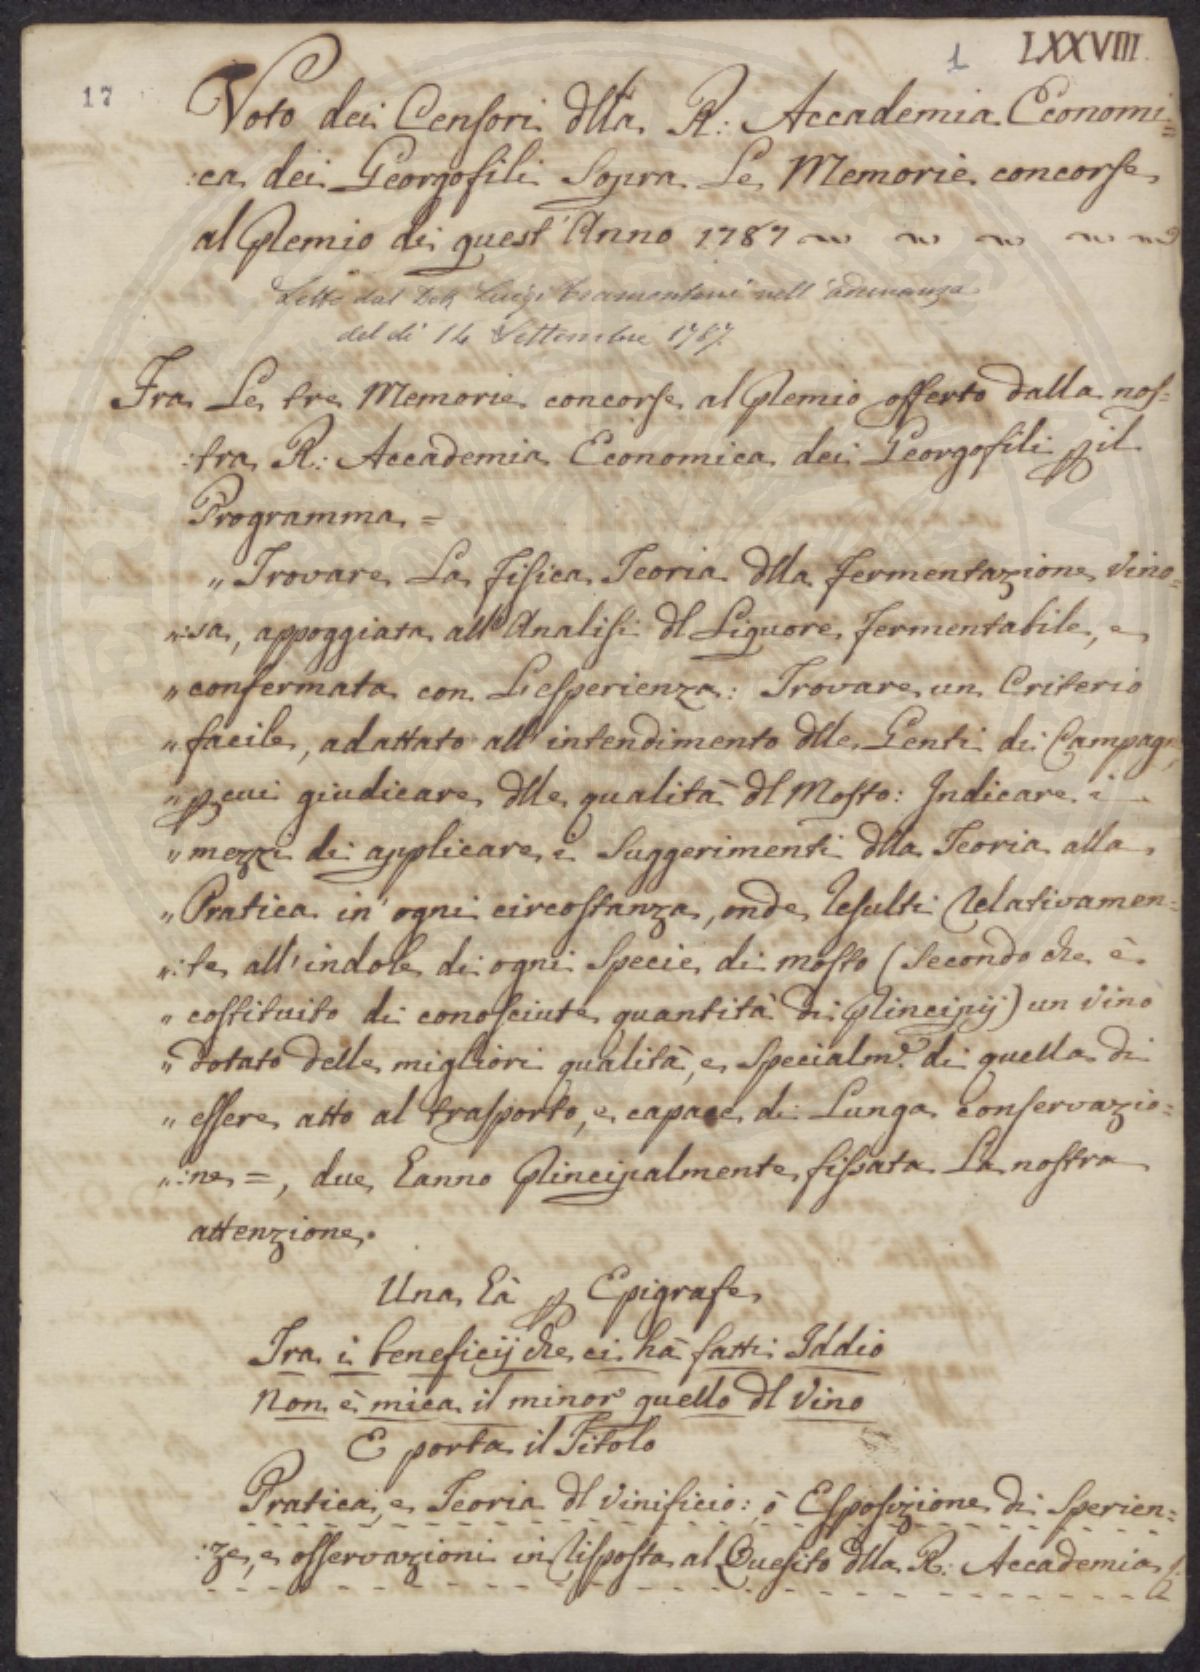 17
1
LXXVIII.
Voto dei Censori dlla R: Accademia Economi=
:ca dei Georgofili sopra Le Memorie concorse
al Premio di quest'Anno 1787
Letto dal Dott. Luigi Tramontani nell'adunanza
del dì 14 Settembre 1787.
Fra Le tre Memorie concorse al Premio offerto dalla nos=
:tra R: Accademia Economica dei Georgofili p il
Programma =
„ Trovare La fisica Teoria dlla fermentazione vino=
„:sa, appoggiata all'Analisi dl Liquore fermentabile, e
„ confermata con L'esperienza: Trovare un Criterio
„ facile, adattato all'intendimento dlle Genti di Campagna
„ p cui giudicare dlle qualità dl Mosto: Indicare i
„ mezzi di applicare i suggerimenti dlla Teoria alla
„ Pratica in ogni circostanza, onde resulti relativamen=
„:te all'indole di ogni specie di mosto (secondo che è
„ costituito di conosciute quantità di principij) un vino
„ dotato delle migliori qualità, e specialm.e di quella di
„ essere atto al trasporto, e capace di Lunga conservazio=
„:ne =, due hanno principalmente fissata La nostra
attenzione.
Una hà p Epigrafe
Tra i beneficij che ci hà fatti Iddio
Non è mica il minor quello dl vino
E porta il Titolo
Pratica, e Teoria dl vinificio: ò Esposizione di sperien=
:ze, e osservazioni in risposta al Quesito dlla R: Accademia